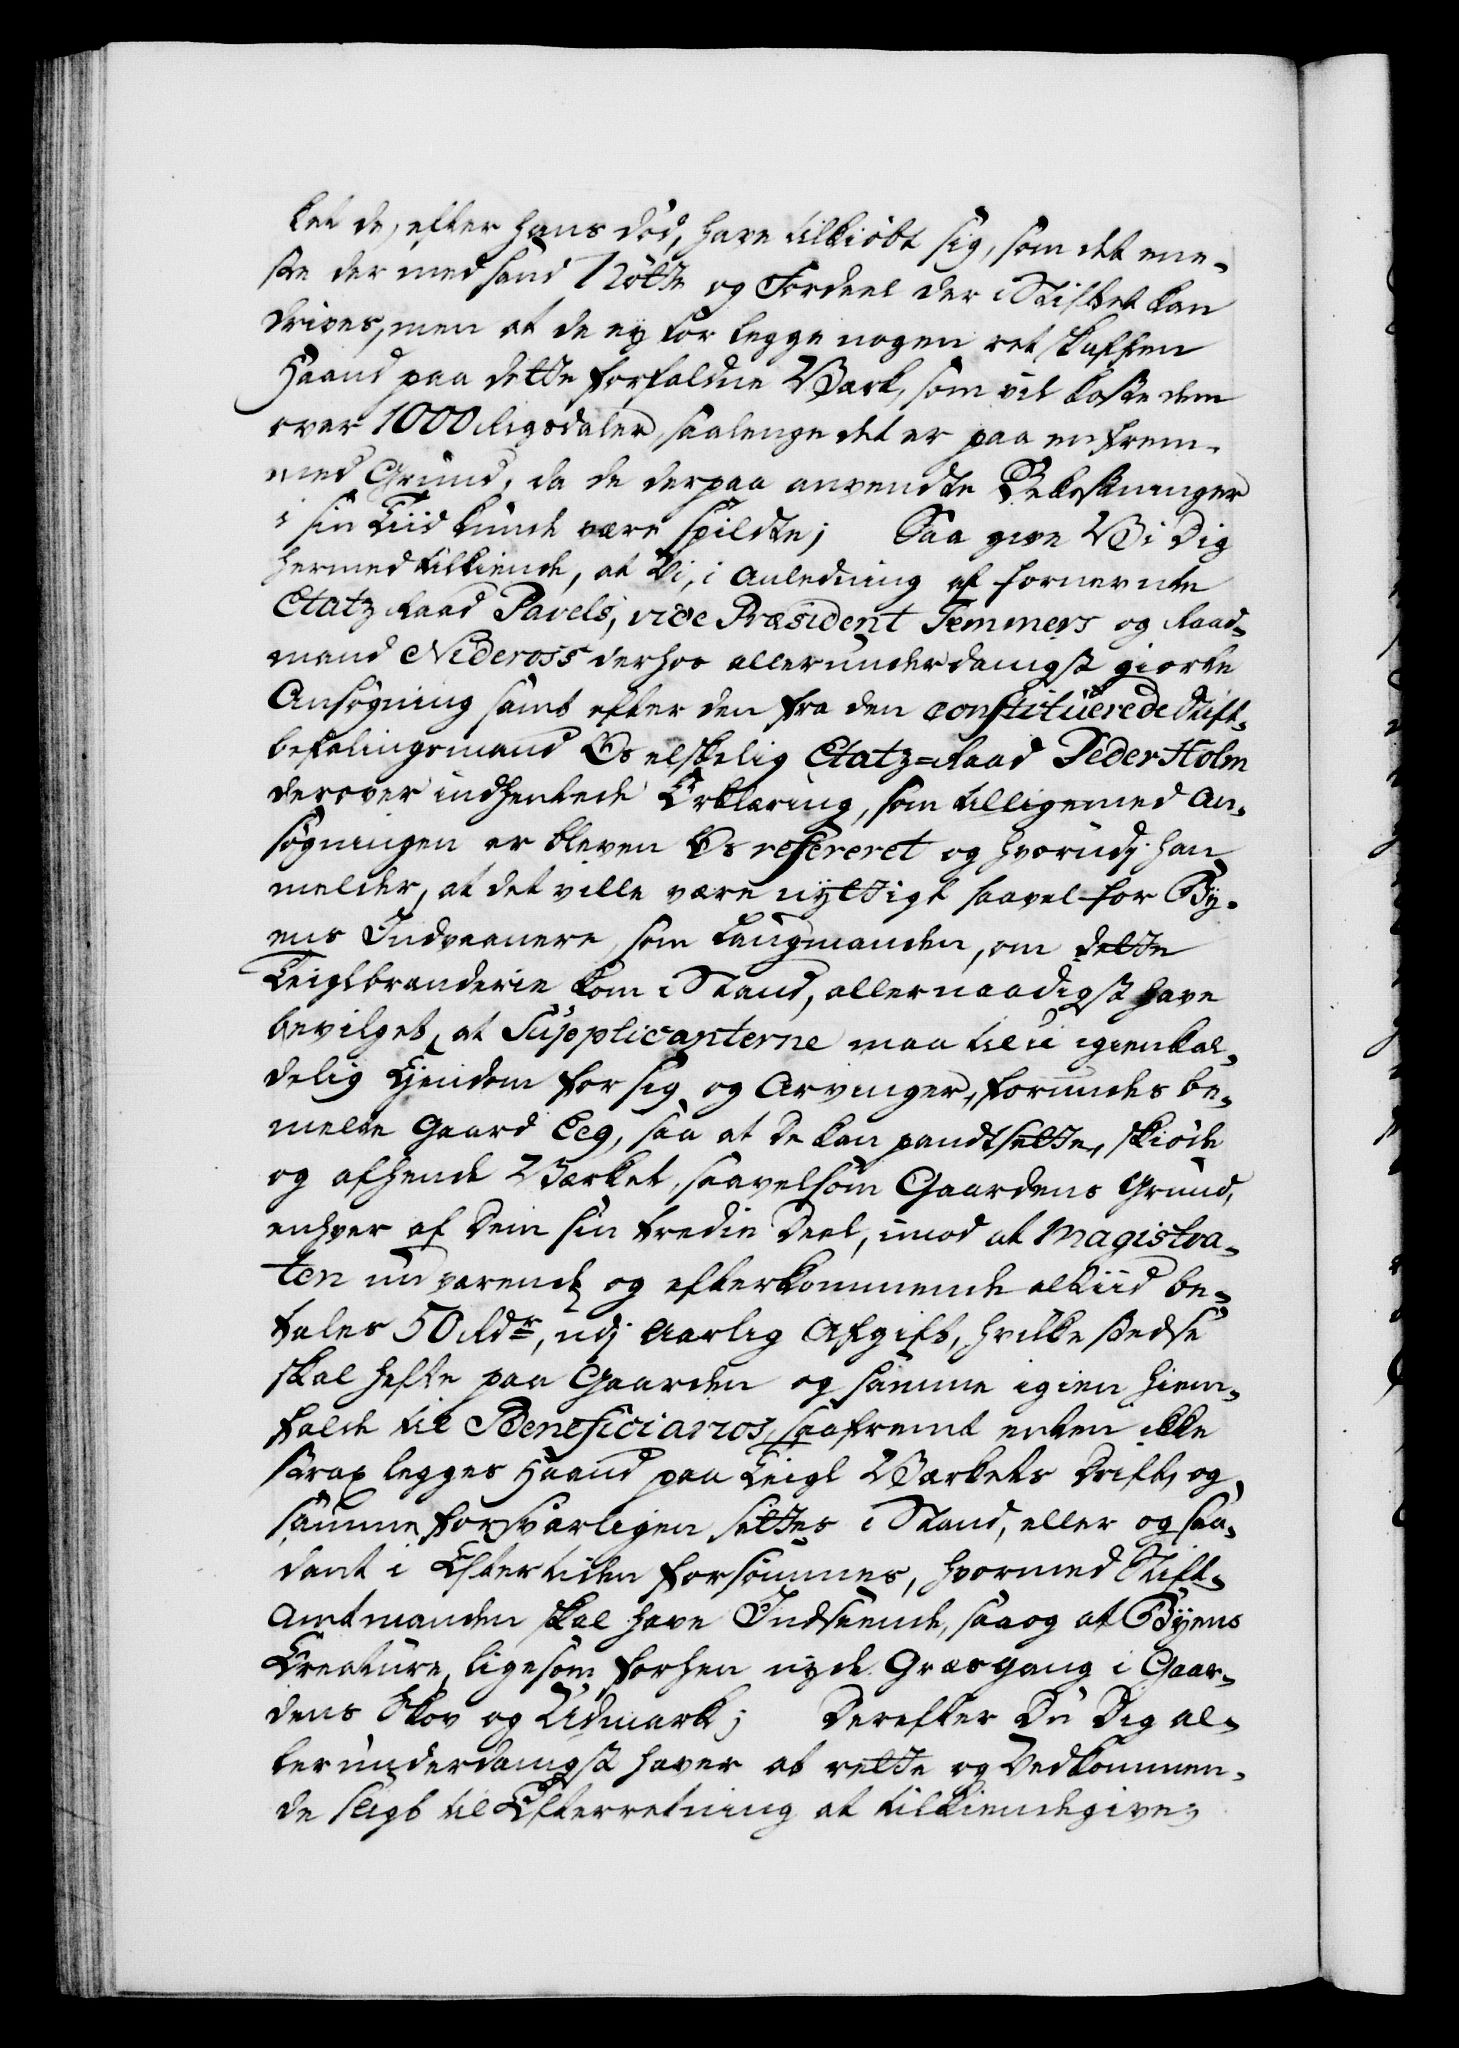 ket de, efter hans död, have tilkiöbt sig, som det ene-
ste der med sand Nötte og Fordeel der i Stiftet kan
drives, men at de ey tör legge nogen ret skaffen
Haand paa dette forfaldne Værk, som vil koste dem
over 1000 Rigsdaler, saalenge det er paa en frem-
med Grund, da de derpaa anvendte Bekostninger
i sin Tiid kunde være spildte; Saa give Vi Dig
hermed tilkiende, at Vi, i Anledning af fornevnte
Etatz Raad Pavels, vice Præsident Temmers og Raad-
mand Nideross derhos allerunderdanigst giorte
Ansøgning samt efter den fra den constituerede Stift-
befalingsmand Os elskelig Etatz-Raad Peder Holm
derover indhentede Erklæring, som tilligemed An-
søgningen er bleven Os refereret og hvorudj han
melder, at det ville være nyttigt saavel for By-
ens Indvaanere som Laugmanden, om dette
Teiglbrænderie kom i Stand, allernaadigst have
bevilget, at Supplicanterne maa til u-igienkal-
delig Ejendom for sig og Arvinger, forundes be-
melte Gaard Eeg, saa at de kan pandtsette, skiöde
og afhende Værket, saavelsom Gaardens Grund,
enhver af Dem sin tredie Deel, imod at Magistra-
ten nu værende og efterkommende altiid be-
tales 50 Rdr, udj aarlig Afgift, hvilke stedse
skal hefte paa Gaarden og samme igien hiem-
falde til Beneficiarios, saafremt enten ikke
strax legges Haand paa Teigl Værkets Drift, og
samme forsvarligen settes i Stand, eller og saa-
dant i Eftertiden forsömmes, hvormed Stift-
amtmanden skal have Indseende, saa og at Byens
Creature, ligesom forhen nyde Græsgang i Gaar-
dens Skov og Udmark; Derefter Du Dig al-
lerunderdanigst haver at rette og Vedkommen-
de sligt til Efterretning at tilkiendegive;